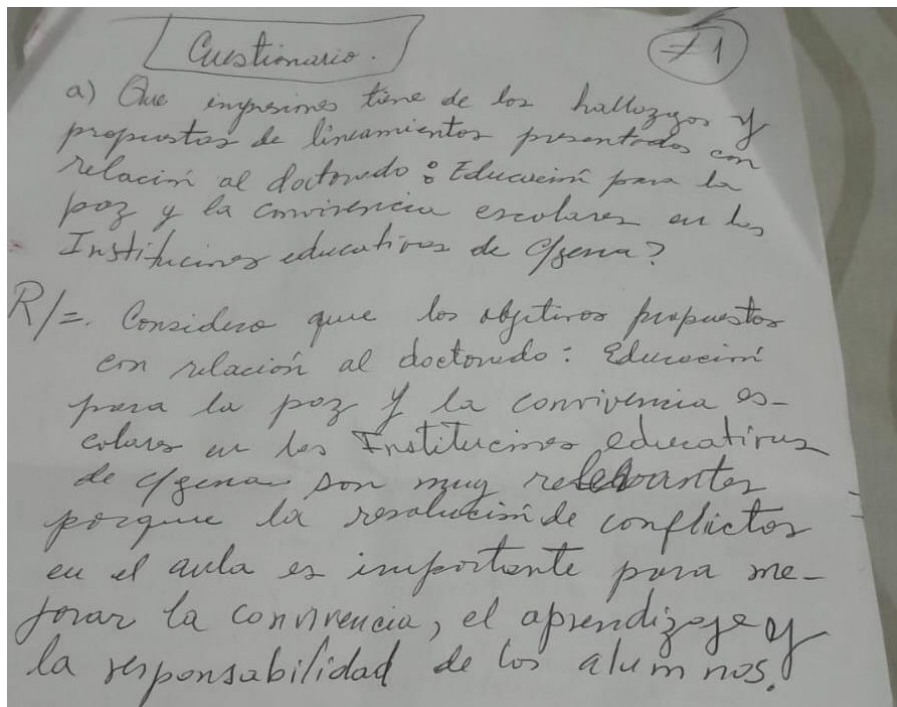 Cuestionario.
#1
a) Que impresiones tiene de los hallazgos y
propuestas de lineamientos presentados con
relación al doctorado: Educación para la
paz y la convivencia escolares en las
Instituciones educativas de C/gena?
R/=. Considero que los objetivos propuestos
con relación al doctorado: Educación
para la paz y la convivencia es-
colares en las Instituciones educativas
de C/gena son muy relevantes
porque la resolución de conflictos
en el aula es importante para me-
jorar la convivencia, el aprendizaje y
la responsabilidad de los alumnos.